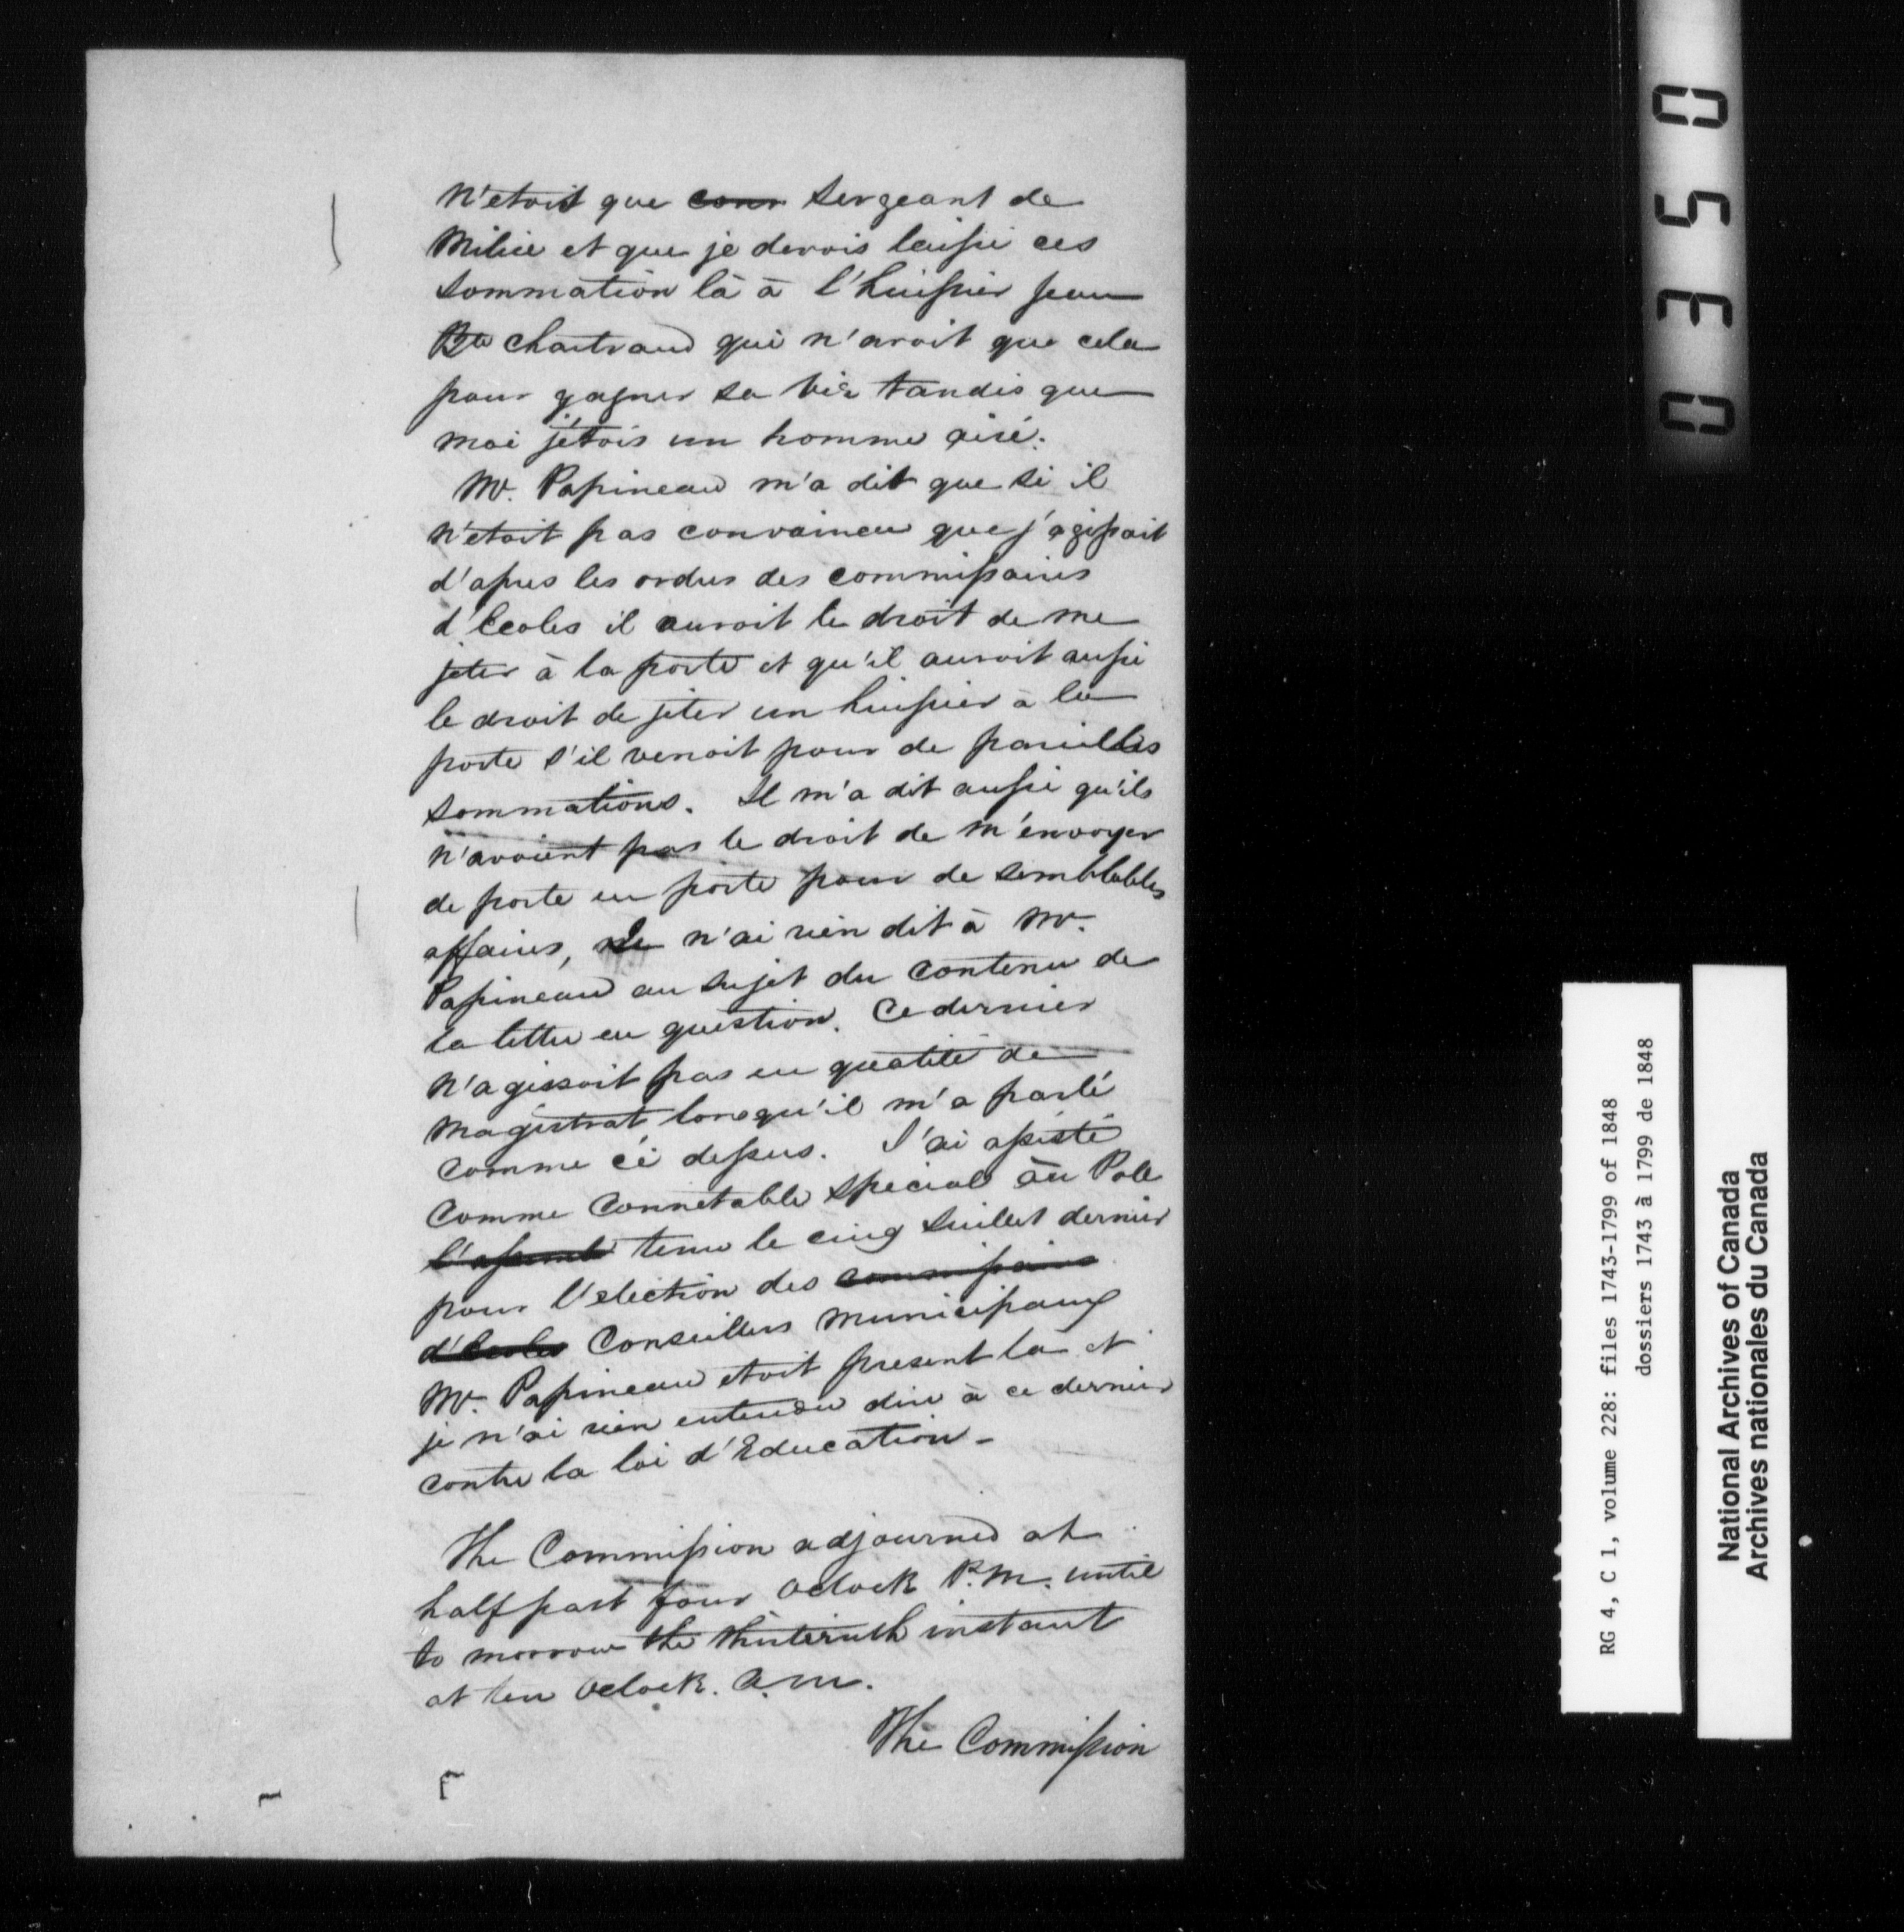 n'etois que ~~conn~~ Sergeant de
Milice et que je devois laissé ces
sommation là à l'huissier Jean
Bte Chartrand qui n'avoit que cela
pour gagner sa vie tandis que
moi j'étois un homme aisé.
Mr. Papineau m'a dit que si il
n'etoit pas convaincu que j'agissait
d'apres les ordres des commissaires
d'Ecoles il auroit le droit de me
jeter à la porte et qu'il auroit aussi
le droit de jeter un huissier à la
porte s'il venoit pour de pareilles
sommations. Il m'a dit aussi qu'ils
n'avoient pas le droit de m'envoyer
de porte en porte pour de semblables
affaires, Je n'ai rien dit à Mr.
Papineau au sujet du contenu de
la lettre en question. Ce dernier
n'agissoit pas en qualité de
Magistrat lorsqu'il m'a parlé
comme ci dessus. J'ai assisté
comme Connetable special au Pole
~~l'assemb~~ tenu le cinq Juillet dernier
pour l'election des ~~commissaires~~
~~d'Ecoles~~ Conseillers Municipaux
Mr. Papineau etoit present là et
je n'ai rien entendu dire à ce dernier
contre la loi d'Education -
The Commission adjourned at
half past four Oclock P.M. until
to morrow the thirteenth instant
at ten Oclock. A.M.
The Commission
0350
RG 4, C 1, volume 228: files 1743-1799 of 1848
dossiers 1743 à 1799 de 1848
National Archives of Canada
Archives nationales du Canada